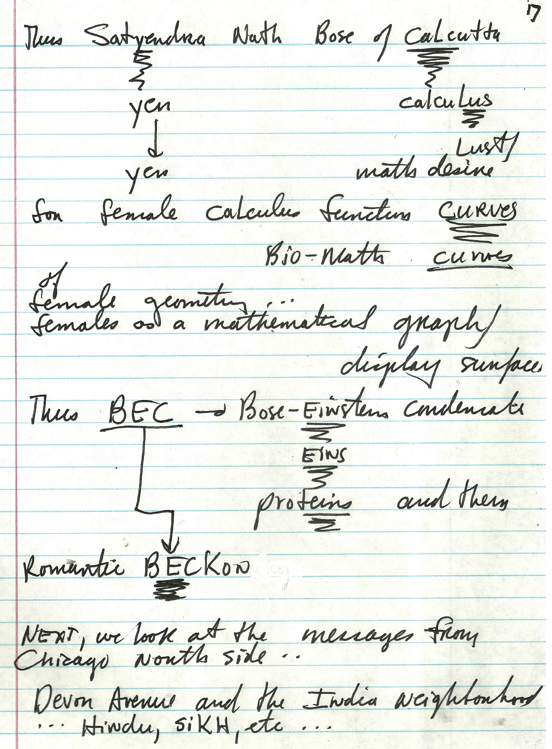 17
Thus Satyendra Nath Bose of Calcutta
yen calculus
yen Lust/
math desire
for female calculus functions CURVES
Bio-Math curves
of
female geometry ...
females as a mathematical graph/
display surface
Thus BEC → Bose-Einstein condensate
EINS
proteins and them
Romantic BECKon
NEXT, we look at the messages from
Chicago north side ..
Devon Avenue and the India neighborhood
... Hindu, SIKH, etc ...